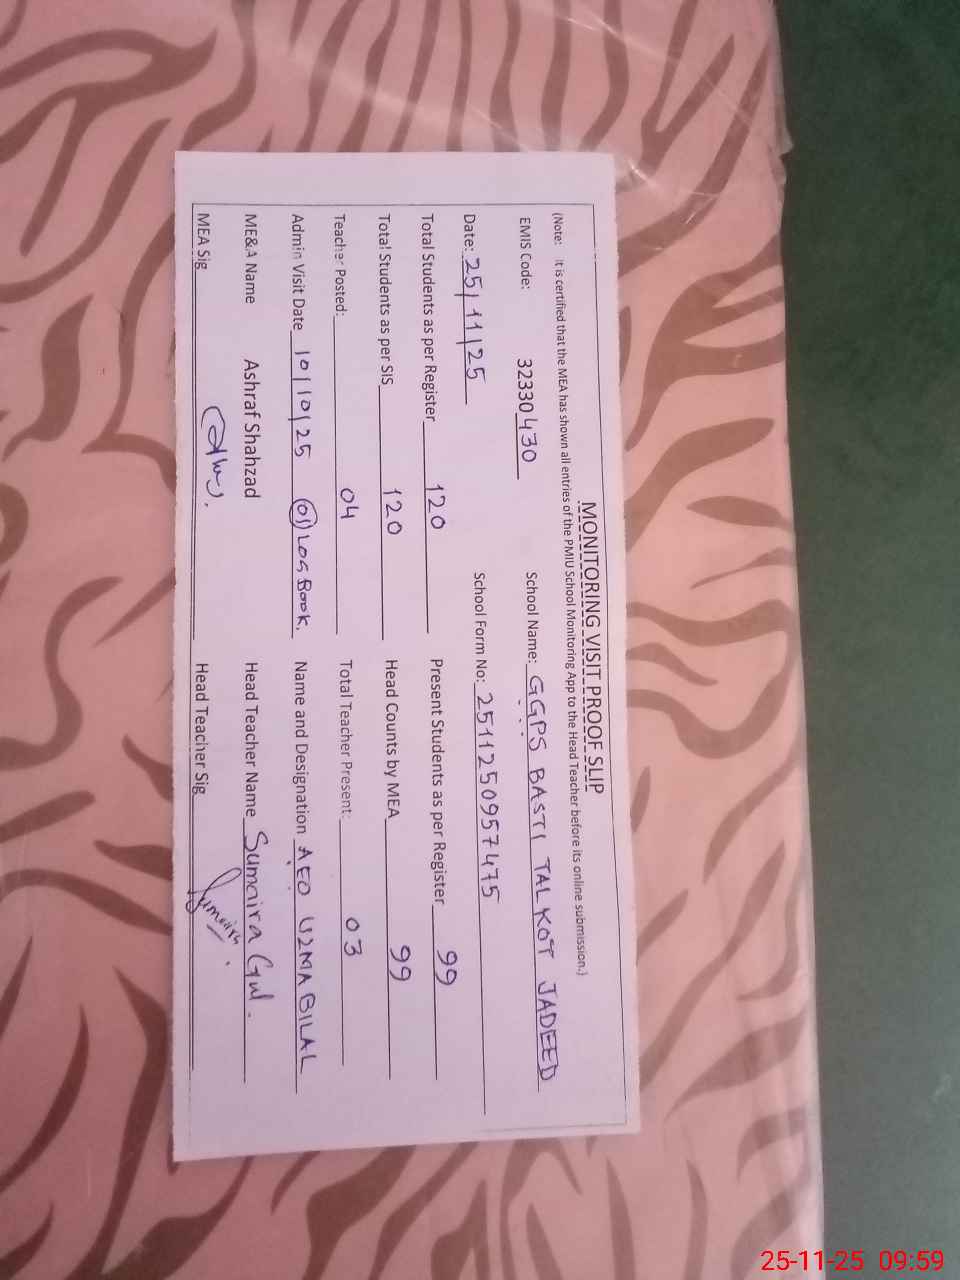 MONITORING VISIT PROOF SLIP
(Note: It is certified that the MEA has shown all entries of the PMIU School Monitoring App to the Head Teacher before its online submission.)
EMIS Code: 32330430 School Name: GGPS BASTI TALKOT JADEED
Date: 25/11/25 School Form No: 2511250957475
Total Students as per Register 120 Present Students as per Register 99
Total Students as per SIS 120 Head Counts by MEA 99
Teacher Posted: 04 Total Teacher Present: 03
Admin Visit Date 10/10/25 01 LOG BOOK. Name and Designation AEO UZMA BILAL
ME&A Name Ashraf Shahzad Head Teacher Name Sumaira Gul.
MEA Sig Head Teacher Sig Sumaira
25-11-25 09:59